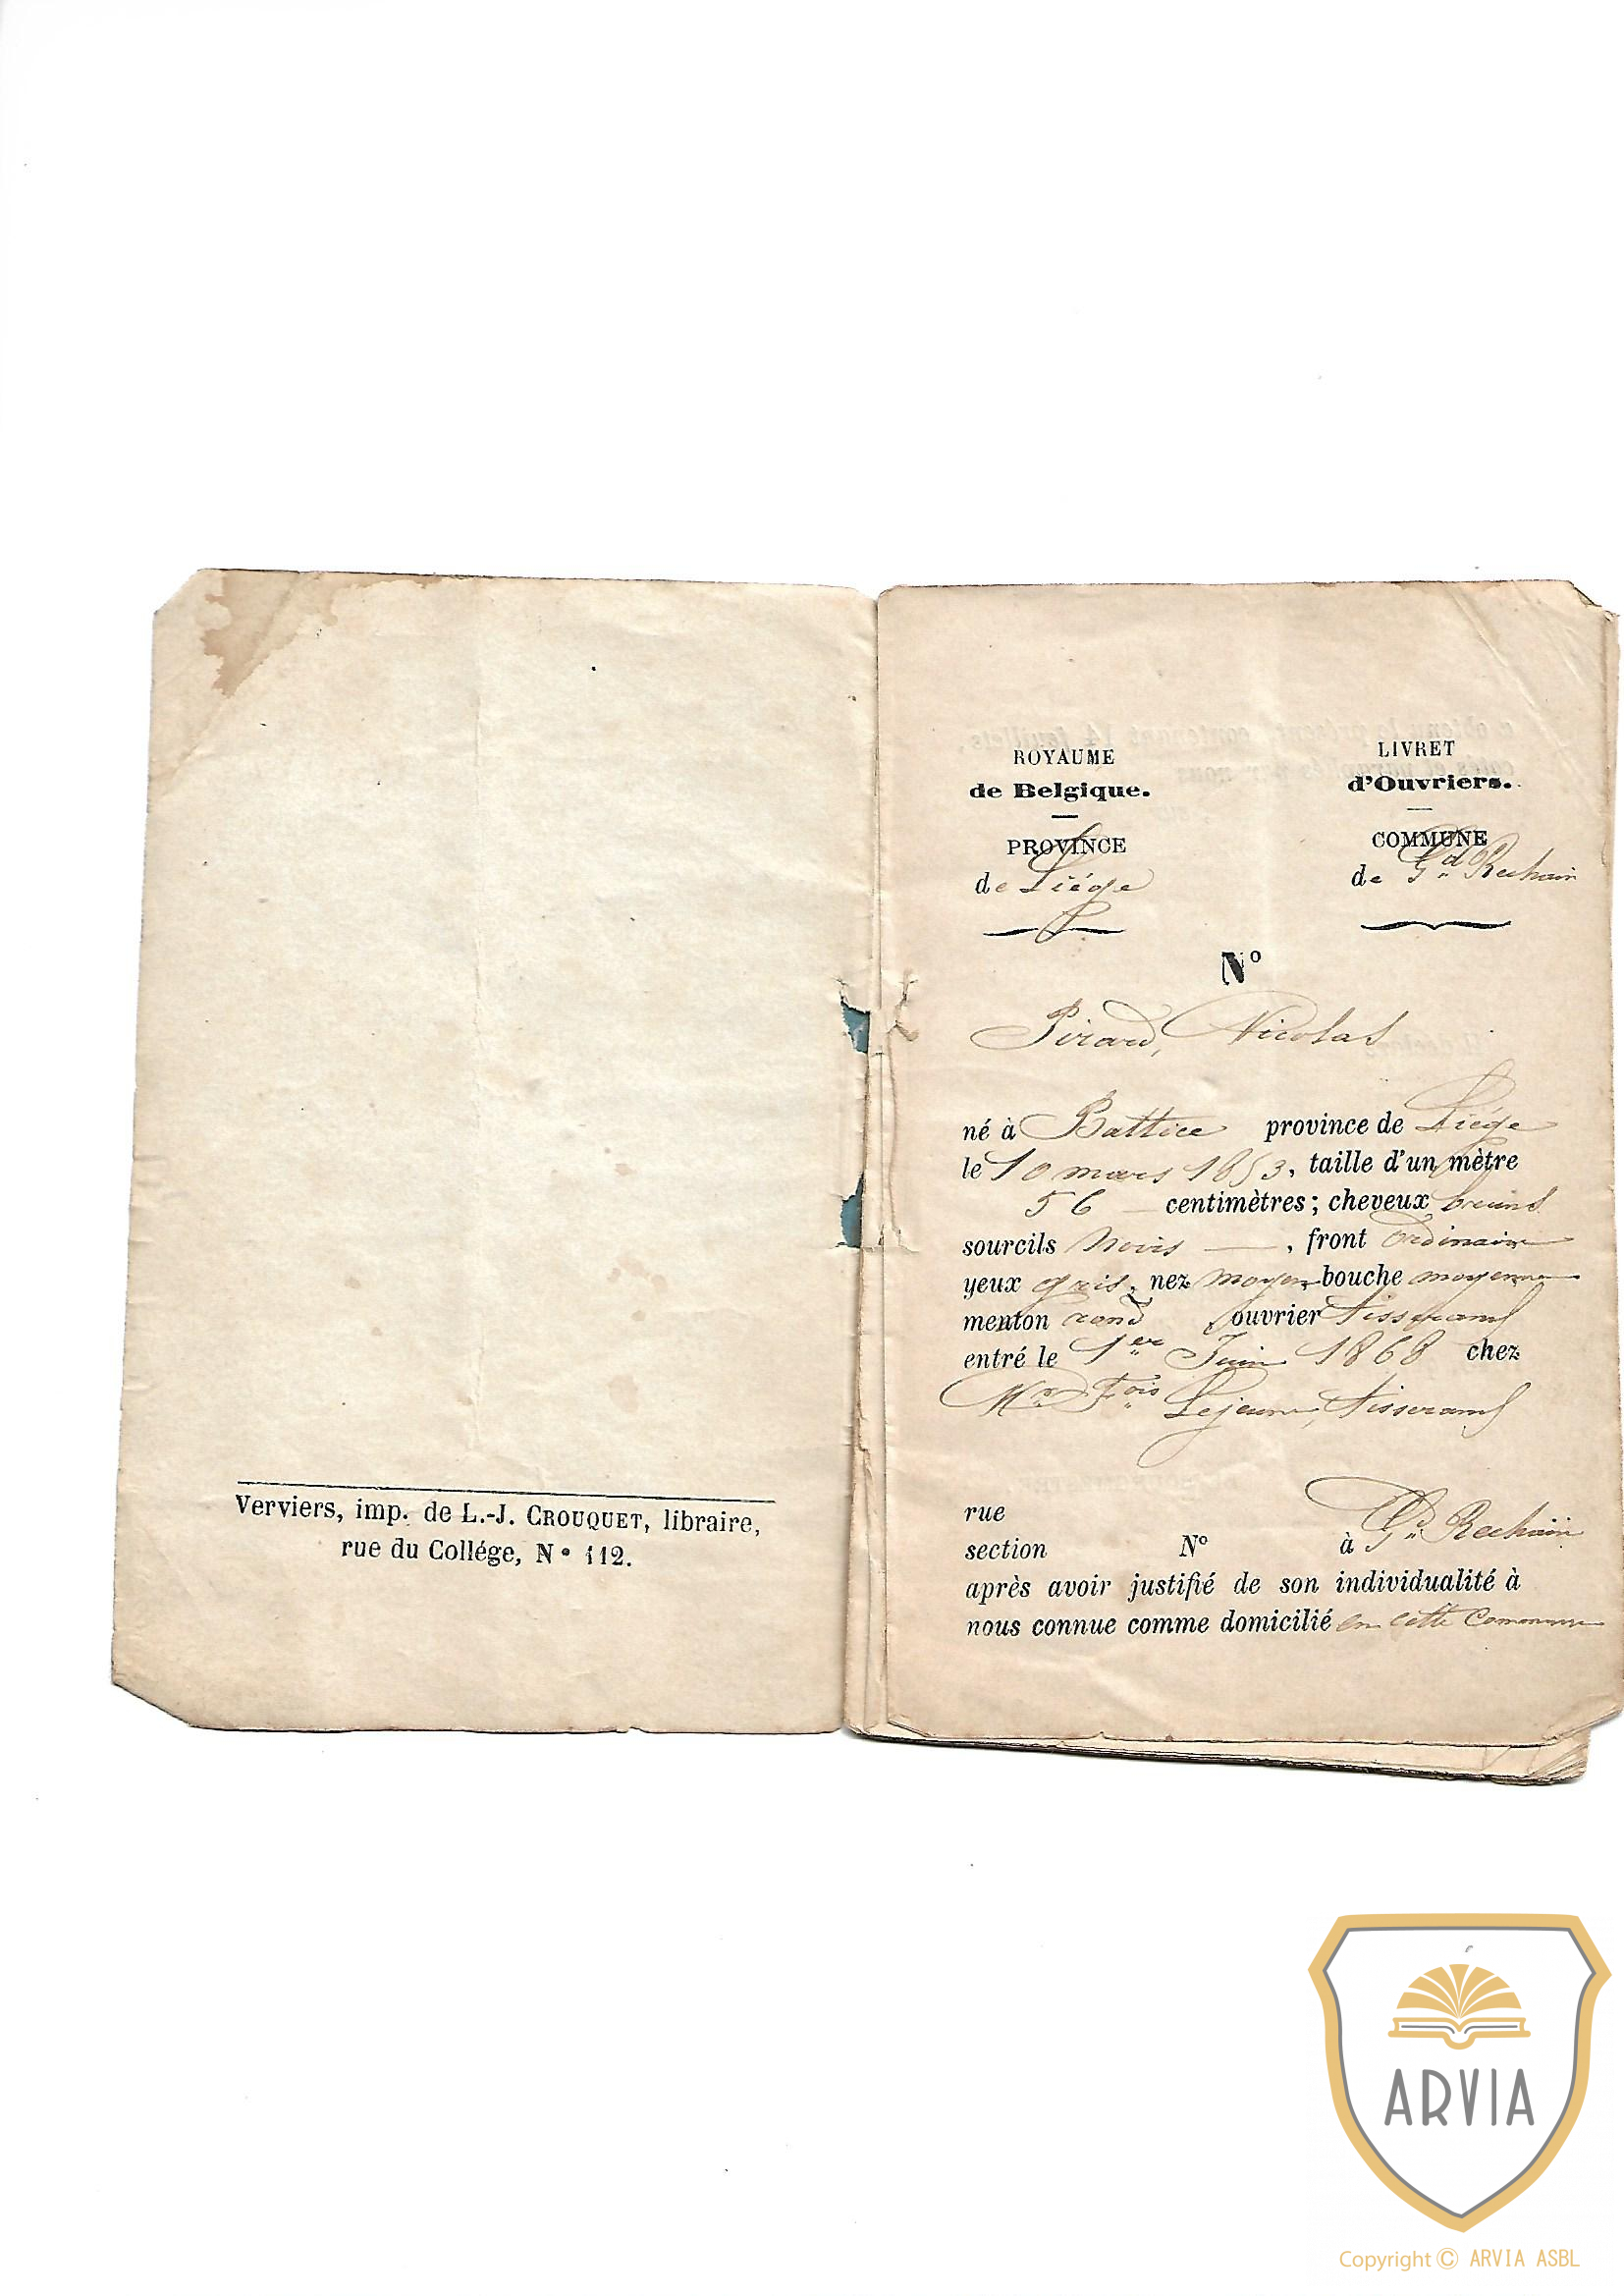 Verviers, imp. de L.-J. CROUQUET, libraire,
rue du Collége, N° 112.
ROYAUME
de Belgique.
PROVINCE
de Liége
LIVRET
d'Ouvriers.
COMMUNE
de Gd Rechain
N°
Pirard, Nicolas
né à Battice province de Liége
le 10 mars 1853, taille d'un mètre
56 centimètres; cheveux bruns
sourcils noirs, front ordinaire
yeux gris, nez moyen bouche moyenne
menton rond, ouvrier tisserand
entré le 1er Juin 1868 chez
Mr Fois Lejeune, tisserand
rue
section N° à Gd Rechain
après avoir justifié de son individualité à
nous connue comme domicilié en cette Commune
ARVIA
Copyright © ARVIA ASBL